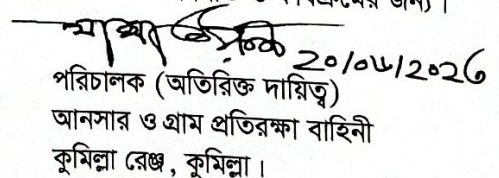 ২০/০৮/২০২৫
পরিচালক (অতিরিক্ত দায়িত্ব)
আনসার ও গ্রাম প্রতিরক্ষা বাহিনী
কুমিল্লা রেঞ্জ, কুমিল্লা।